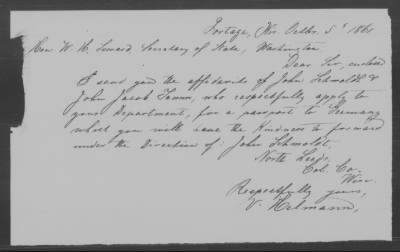 Portage, Wis. Octbr. 5th 1861
Hon. W. H. Seward, Secretary of State, Washington
Dear Sir, enclosed
I send you the affidavits of John Schmoldt &
John Jacob who respectfully apply to
your Department, for a passport to Germany
which you will have the kindness to forward
under the Direction of: John Schmoldt,
North Leeds,
Col. Co.
Wisc.
Respectfully yours,
V. Helmann,